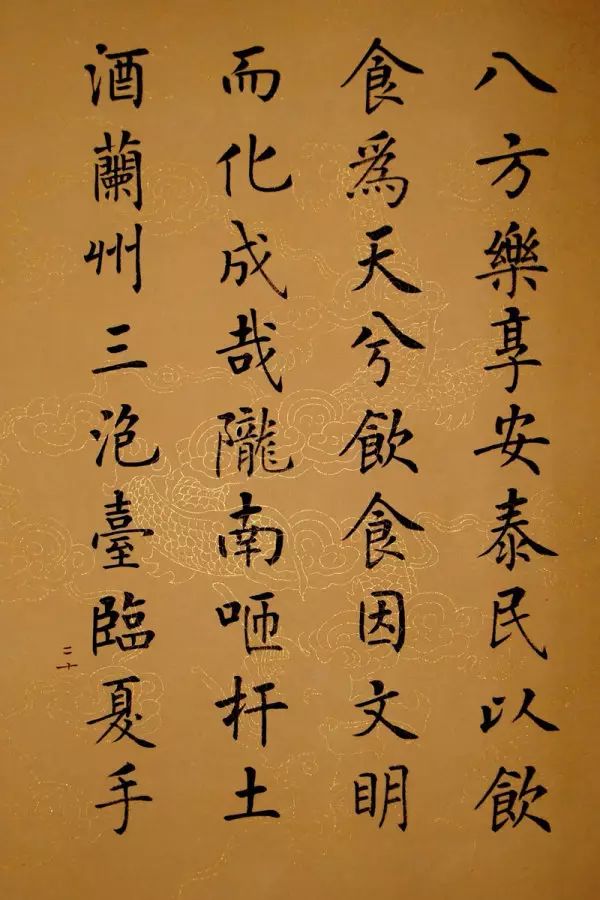 八方樂享安泰民以飲
食爲天兮飲食因文明
而化成哉隴南咂杆土
酒蘭州三泡臺臨夏手
二十